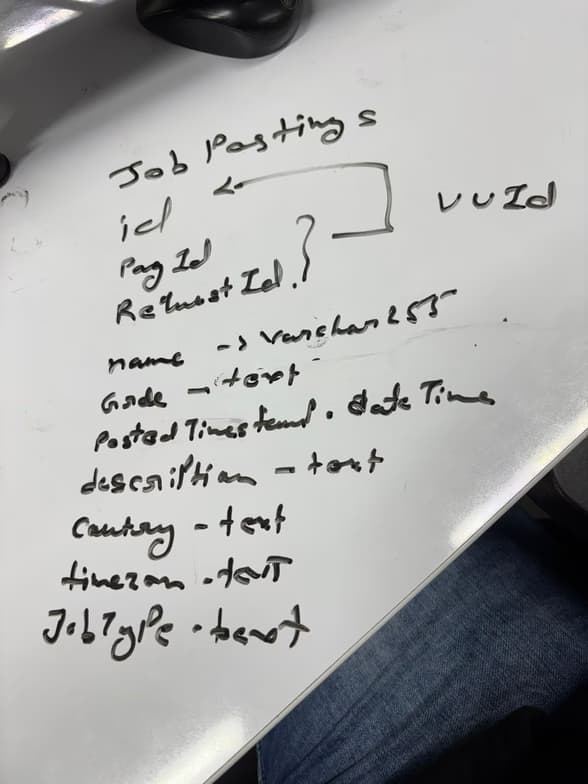 Job Postings
id
Pag Id
Request Id.
UUId
name -> Varchar 255
Grade - text
Posted Timestamp. date Time
description - text
Country - text
timezon - text
JobType - text